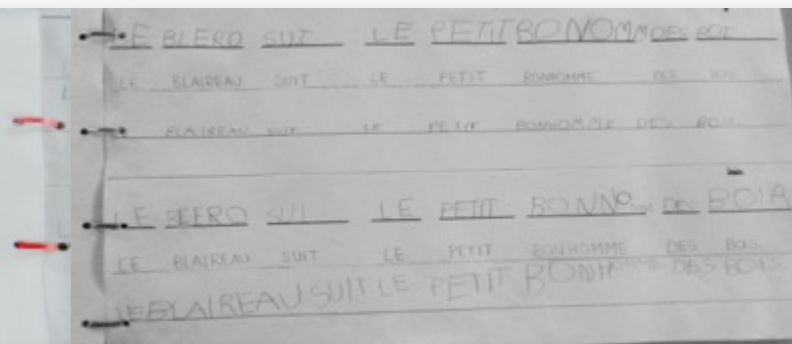 LE BLERO SUIT LE PETIT BONOMM DES BOI
LE BLAIREAU SUIT LE PETIT BONHOMME DES BOIS
BLAIREAU SUIT LE PETIT BONHOMME DES BOIS
LE BLERO SUI LE PETIT BONNO DES BOIA
LE BLAIREAU SUIT LE PETIT BONHOMME DES BOIS
LE BLAIREAU SUIT LE PETIT BONHOMME DES BOIS